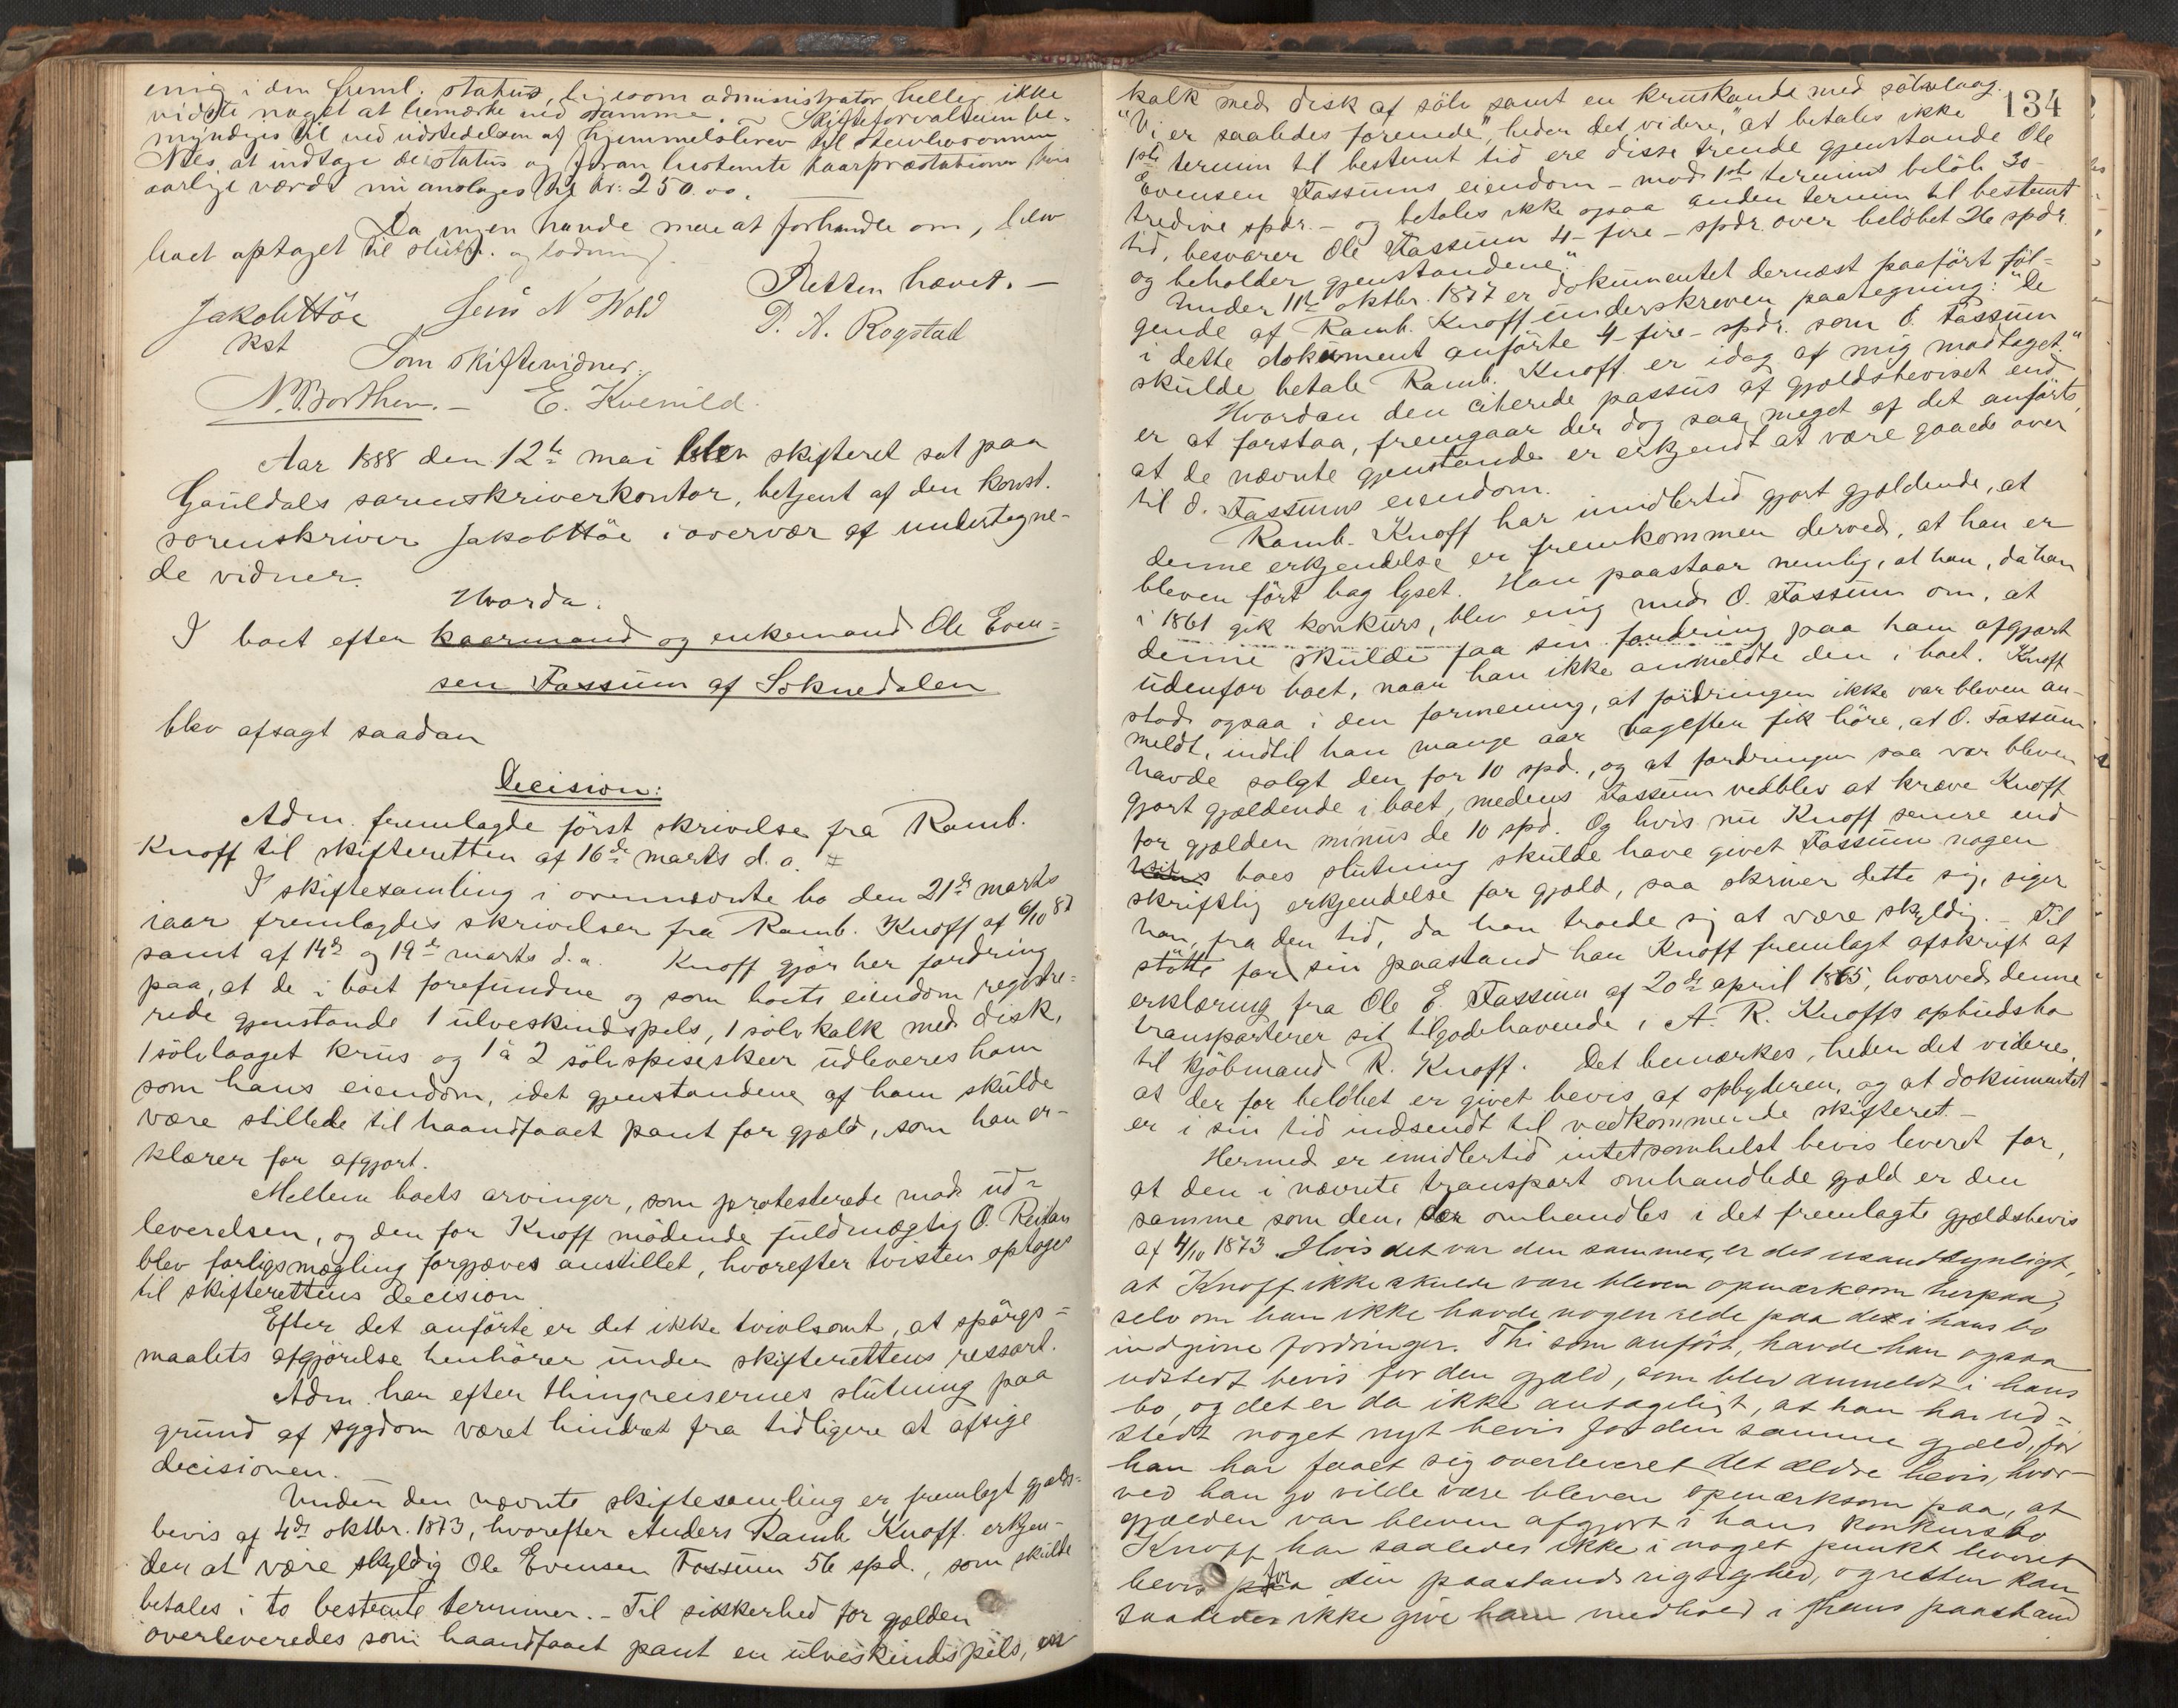 enig i den freml. status, ligesom administrator heller ikke
vidste noget at bemærke ved samme. – Skifteforvalteren be-
myndiges til ved udstedelsen af hjemmelsbrev til
Nils, at indtage de i status og foran bestemte kaarpræstationer hvis
aarlige værdi nu ansloges til kr: 250.00.
Da ingen havde mere at forhandle om, blev
boet optaget til slutn. og lodning.
Retten hævet. –
Jakob Høe Jens N Wold P. A. Rogstad
kst
Som skiftevidner:
N. Borthen. – E. Kvernild.
Aar 1888 den 12te mai blev skifteret sat paa
Gauldals sorenskriverkontor, betjent af den konst.
sorenskriver Jakob Høe i overvær af undertegne-
de vidner.
Hvorda:
I boet efter kaarmand og enkemand Ole Even=
sen Fossum af Soknedalen
blev afsagt saadan
Decision:
Adm. fremlagde först skrivelse fra Ramb.
Knoff til skifteretten af 16de marts d. a. #
I skiftesamling i ovennævnte bo den 21de marts
iaar fremlagdes skrivelser fra Ramb. Knoff af 6/10 87
samt af 14de og 19de marts d. a. Knoff gjör her fordring
paa, at de i boet forefundne og som boets eiendom registre=
rede gjenstande 1 ulveskindspels, 1 sölvkalk med disk,
1 sölvlaaget krus og 1 à 2 sölvspiseskeer udleveres ham
som hans eiendom, idet gjenstandene af ham skulde
være stillede til haandfaaet pant for gjæld, som han er-
klærer for afgjort.
Mellem boets arvinger, som protesterede mod ud=
leverelsen, og den for Knoff mödende fuldmægtig O. Reitan
blev forligsmægling forgjæves anstillet, hvorefter tvisten optoges
til skifterettens decision
Efter det anförte er det ikke tvivlsomt, at spörgs=
maalets afgjörelse henhörer under skifterettens ressort.
Adm. har efter thingreisernes slutning paa
grund af sygdom været hindret fra tidligere at afsige
decisionen.
Under den nævnte skiftesamling er fremlagt gjælds=
bevis af 4de oktbr. 1873, hvorefter Anders Ramb Knoff erkjen-
der at være skyldig Ole Evensen Fossum 56 spd., som skulde
betales i to bestemte terminer. – Til sikkerhed for gjælden
overleveredes som haandfaaet pant en ulveskindspels, en
134
kalk med disk af sölv samt en kruskande med sölvlaag.
"Vi er saaledes forenede", heder det videre, "at betales ikke
1ste termin til bestemt tid ere disse trende gjenstande Ole
Evensen Fassums eiendom – mod 1ste termins belöb 30 –
tredive spdr. – og betales ikke ogsaa anden termin til bestemt
tid, besvarer Ole Fassum 4 – fire – spdr. over belöbet 26 spdr.
og beholder gjenstandene".
Under 11te oktbr. 1877 er dokumentet dernæst paafört föl-
gende af Ramb. Knoff underskreven paategning: "De
i dette dokument anförte 4 – fire – spdr. som O. Fassum
skulde betale Ramb. Knoff er idag af mig modtaget."
Hvordan den citerede passus af gjældsbeviset end
er at forstaa, fremgaar der dog saa meget af det anförte,
at de nævnte gjenstande er erkjendt at være gaaede over
til O. Fassums eiendom.
Ramb. Knoff har imidlertid gjort gjældende, at
denne erkjendelse er fremkommen derved, at han er
bleven fört bag lyset. Han paastaar nemlig, at han, da han
i 1861 gik konkurs, blev enig med O. Fassum om, at
denne skulde faa sin fordring paa ham afgjort
udenfor boet, naar han ikke anmeldte den i boet. Knoff
stod ogsaa i den formening, at fordringen ikke var bleven an-
meldt, indtil han mange aar bagefter fik höre, at O. Fassum
havde solgt den for 10 spd., og at fordringen saa var bleven
gjort gjældende i boet, medens Fassum vedblev at kræve Knoff
for gjælden minus de 10 spd. Og hvis nu Knoff senere end
hans boes slutning skulde have givet Fassum nogen
skriftlig erkjendelse for gjæld, saa skriver dette sig, siger
han, fra den tid, da han troede sig at være skyldig. – Til
stötte for sin paastand har Knoff fremlagt afskrift af
erklæring fra Ole E. Fassum af 20de april 1865, hvorved denne
transporterer sit tilgodehavende i A. R. Knoffs opbudsbo
til kjöbmand R. Knoff. Det bemærkes, heder det videre,
at der for belöbet er givet bevis af opbyderen, og at dokumentet
er i sin tid indsendt til vedkommende skifteret. –
Hermed er imidlertid intetsomhelst bevis leveret for,
at den i nævnte transport omhandlede gjæld er den
samme som den, der omhandles i det fremlagte gjældsbevis
af 4/10 1873. Hvis det var den samme, er det usandsynligt,
at Knoff ikke skulde være bleven opmærksom herpaa,
selv om han ikke havde nogen rede paa de i hans bo
indgivne fordringer. Thi som anfört, havde han ogsaa
udstedt bevis for den gjæld, som blev anmeldt i hans
bo, og det er da ikke antageligt, at han har ud=
stedt noget nyt bevis for den samme gjæld, för
han har faaet sig overleveret det ældre bevis, hvor-
ved han jo vilde være bleven opmærksom paa, at
gjælden var bleven afgjort i hans konkursbo
Knoff har saaledes ikke i noget punkt leveret
bevis for sin paastands rigtighed, og retten kan
saaledes ikke give ham medhold i hans paastand